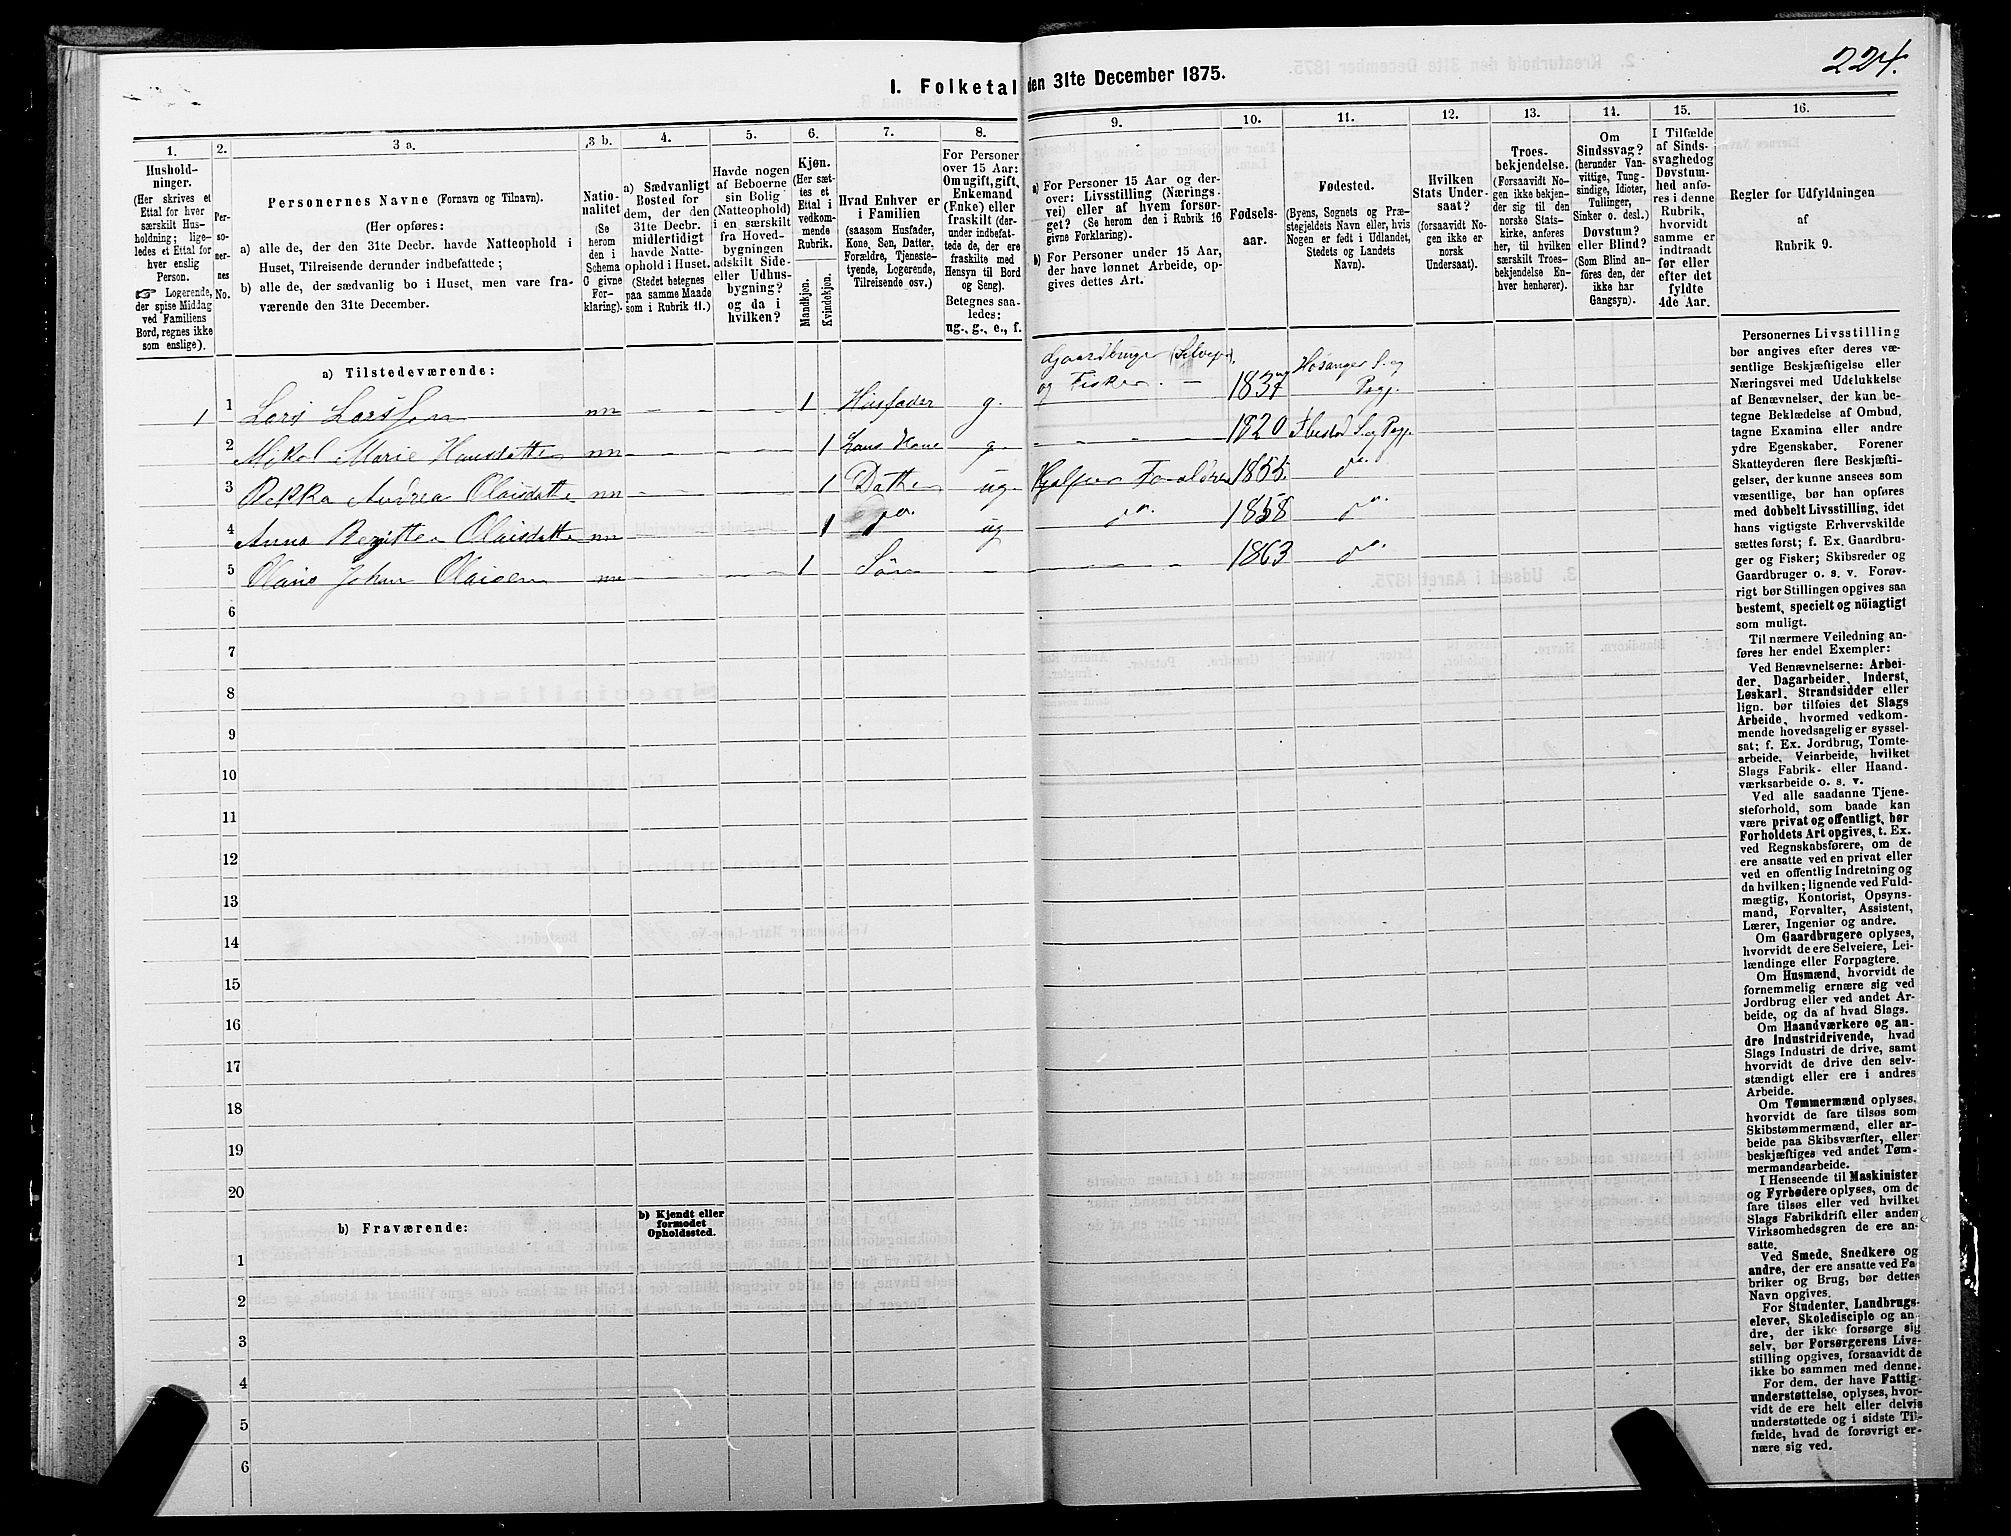 224.
I. Folketal den 31te December 1875.
1.
Hushold-
ninger.
(Her skrives et
Ettal for hver
særskilt Hus-
holdning; lige-
ledes et Ettal for
hver enslig
Person.
☞ Logerende,
der spise Middag
ved Familiens
Bord, regnes ikke
som enslige).
2.
Per-
so-
ner-
nes
No.
3 a.
Personernes Navne (Fornavn og Tilnavn).
(Her opføres:
a) alle de, der den 31te Decbr. havde Natteophold i
Huset, Tilreisende derunder indbefattede;
b) alle de, der sædvanlig bo i Huset, men vare fra-
værende den 31te December.
3 b.
Natio-
nalitet
(Se
herom
den i
Schema
C givne
For-
klaring).
4.
a) Sædvanligt
Bosted for
dem, der den
31te Decbr.
midlertidigt
havde Natte-
ophold i Huset.
(Stedet betegnes
paa samme Maade
som i Rubrik 11.)
5.
Havde nogen
af Beboerne
sin Bolig
(Natteophold)
i en særskilt
fra Hoved-
bygningen
adskilt Side-
eller Udhus-
bygning?
og da i
hvilken?
6.
Kjøn.
(Her sæt-
tes et
Ettal i
vedkom-
mende
Rubrik.
Mandkjøn.
Kvindekjøn.
7.
Hvad Enhver er
i Familien
(saasom Husfader,
Kone, Søn, Datter,
Forældre, Tjeneste-
tyende, Logerende,
Tilreisende osv.)
8.
For Personer
over 15 Aar:
Om ugift, gift,
Enkemand
(Enke) eller
fraskilt (der-
under indbefat-
tede de, der ere
fraskilte med
Hensyn til Bord
og Seng).
Betegnes saa-
ledes:
ug., g., e., f.
9.
a) For Personer 15 Aar og der-
over: Livsstilling (Nærings-
vei) eller af hvem forsør-
get? (Se herom den i Rubrik 16
givne Forklaring).
b) For Personer under 15 Aar,
der have lønnet Arbeide, op-
gives dettes Art.
10.
Fødsels-
aar.
11.
Fødested.
(Byens, Sognets og Præ-
stegjeldets Navn eller, hvis
Nogen er født i Udlandet,
Stedets og Landets
Navn).
12.
Hvilken
Stats Under-
saat?
(forsaavidt No-
gen ikke er
norsk
Undersaat).
13.
Troes-
bekjendelse.
(Forsaavidt No-
gen ikke bekjen-
der sig til den
norske Stats-
kirke, anføres
her, til hvilken
særskilt Troes-
bekjendelse En-
hver henhører).
14.
Om
Sindssvag?
(herunder Van-
vittige, Tung-
sindige, Idioter,
Tullinger,
Sinker o. desl.)
Døvstum?
eller Blind?
(Som Blind an-
føres den, der
ikke har
Gangsyn).
15.
I Tilfælde
af Sinds-
svaghed og
Døvstum-
hed anfø-
res i denne
Rubrik,
hvorvidt
samme er
indtraadt
før eller
efter det
fyldte
4de Aar.
16.
Regler for Udfyldningen
af
Rubrik 9.
a) Tilstedeværende:
1 1 Lars Larssen nn — — 1 Husfader g. Gaardbruger og Fisker. — 1837 Hosanger S. og Præg.
2 Mikal Marie Hansdatter nn — — 1 Hans Kone g. — — 1820 Ibestad S. og Præg.
3 Rekka Andrea Olaisdatter nn — — 1 Datter ug. Hjelper Forældre 1855. do.
4 Anna Beritte Olaisdatter nn — — 1 do. ug do. 1858 do.
5 Olaus Johan Olaisen nn — — 1 Søn — — 1863 do.
6
7
8
9
10
11
12
13
14
15
16
17
18
19
20
b) Fraværende:
b) Kjendt eller
formodet
Opholdssted.
1
2
3
4
5
6
Personernes Livsstilling
bør angives efter deres væ-
sentlige Beskjæftigelse eller
Næringsvei med Udelukkelse
af Benævnelser, der kun be-
tegne Beklædelse af Ombud,
tagne Examina eller andre
ydre Egenskaber. Forener
Skatteyderen flere Beskjæfti-
gelser, der kunne ansees som
væsentlige, bør han opføres
med dobbelt Livsstilling, idet
hans vigtigste Erhvervskilde
sættes først; f. Ex. Gaardbru-
ger og Fisker; Skibsreder og
Gaardbruger o. s. v. Forøv-
rigt bør Stillingen opgives saa
bestemt, specielt og nöiagtigt
som muligt.
Til nærmere Veiledning an-
føres her endel Exempler:
Ved Benævnelserne: Arbei-
der, Dagarbeider, Inderst,
Løskarl, Strandsidder eller
lign. bør tilføies det Slags
Arbeide, hvormed vedkom-
mende hovedsagelig er syssel-
sat; f. Ex. Jordbrug, Tomte-
arbeide, Veiarbeide, hvilket
Slags Fabrik- eller Haand-
værksarbeide o. s. v.
Ved alle saadanne Tjene-
steforhold, som baade kan
være privat og offentligt, bør
Forholdets Art opgives, t. Ex.
ved Regnskabsførere, om de
ere ansatte ved en privat eller
ved en offentlig Indretning og
da hvilken; lignende ved Fuld-
mægtig, Kontorist, Opsyns-
mand, Forvalter, Assistent,
Lærer, Ingeniør og andre.
Om Gaardbrugere oplyses,
hvorvidt de ere Selveiere, Lei-
lændinge eller Forpagtere.
Om Husmænd, hvorvidt de
fornemmelig ernære sig ved
Jordbrug eller ved andet Ar-
beide, og da af hvad Slags.
Om Haandværkere og an-
dre Industridrivende, hvad
Slags Industri de drive, samt
hvorvidt de drive den selv-
stændigt eller ere i andres
Arbeide.
Om Tømmermænd oplyses,
hvorvidt de fare tilsøs som
Skibstømmermænd, eller ar-
beide paa Skibsværfter, eller
beskjæftiges ved andet Tøm-
mermandsarbeide.
I Henseende til Maskinister
og Fyrbødere oplyses, om de
fare tilsøs eller ved hvilket
Slags Fabrikdrift eller anden
Virksomhedsgren de ere an-
satte.
Ved Smede, Snedkere og
andre, der ere ansatte ved Fa-
briker og Brug, bør dettes
Navn opgives.
For Studenter, Landbrugs-
elever, Skoledisciple og an-
dre, der ikke forsørge sig
selv, bør Forsørgerens Livs-
stilling opgives, forsaavidt de
ikke bo sammen med denne.
For dem, der have Fattig-
understøttelse, oplyses, hvor-
vidt de ere helt eller delvis
understøttede og i sidste Til-
fælde, hvad de forøvrigt er-
nære sig ved.